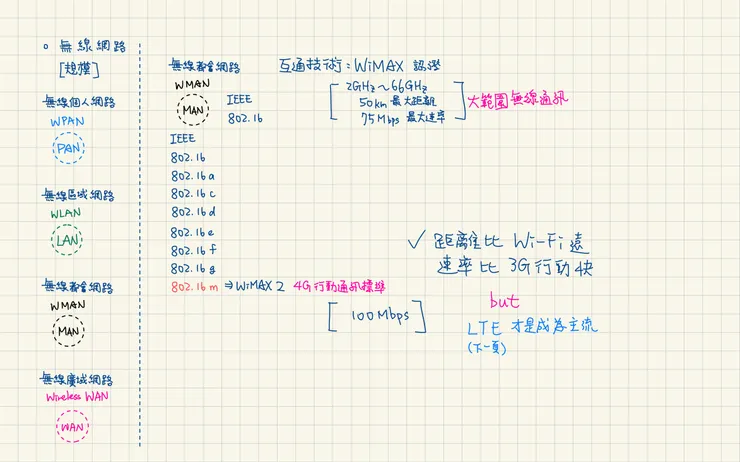 。無線網路
[規模]
無線個人網路
WPAN
PAN
無線區域網路
WLAN
LAN
無線都會網路
WMAN
MAN
無線廣域網路
Wireless WAN
WAN
無線都會網路
WMAN
MAN
IEEE
802.16
互通技術：WiMAX 認證
2GHz～66GHz
50km 最大距離
75Mbps 最大速率
大範圍無線通訊
IEEE
802.16
802.16a
802.16c
802.16d
802.16e
802.16f
802.16g
802.16m ⇒ WiMAX 2 4G行動通訊標準
[100Mbps]
✓ 距離比 Wi-Fi 遠
速率比 3G行動快
but
LTE 才是成為主流
(下一頁)